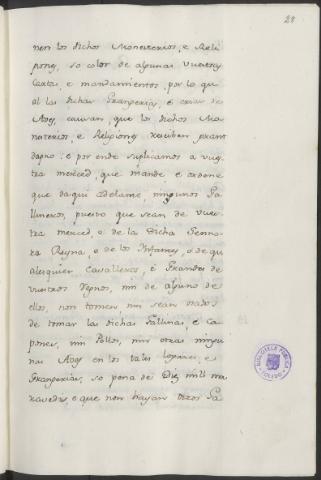 28
nen los dichos Monesterios, e Reli
giones, so color de algunas vuestras
Cartas, e mandamientos, por lo qu
al las dichas Granxerias, e crias de
Aves, cansan, que los dichos Mo
nasterios, e Religiones reciben grant
dapno, e por ende suplicamos a vues
tra merced, que mande e ordene
que da qui adelante, ningunos Ga
llineros, puesto que sean de vues
tra merced, e de la dicha Senno
ra Reyna, e de los Infantes, o de qu
alesquier Cavalleros, e Grandes de
vuestros Regnos, nin de alguno de
ellos, non tomen nin sean osados
de tomar las dichas Gallinas, e Ca
pones, nin Pollos, nin otras ningu
nas Aves en los tales logares, e
Granxerias, so pena de Diez mill ma
ravedis, e que non hayan otros Ga
BIBLIOTECA PUBLICA
TOLEDO